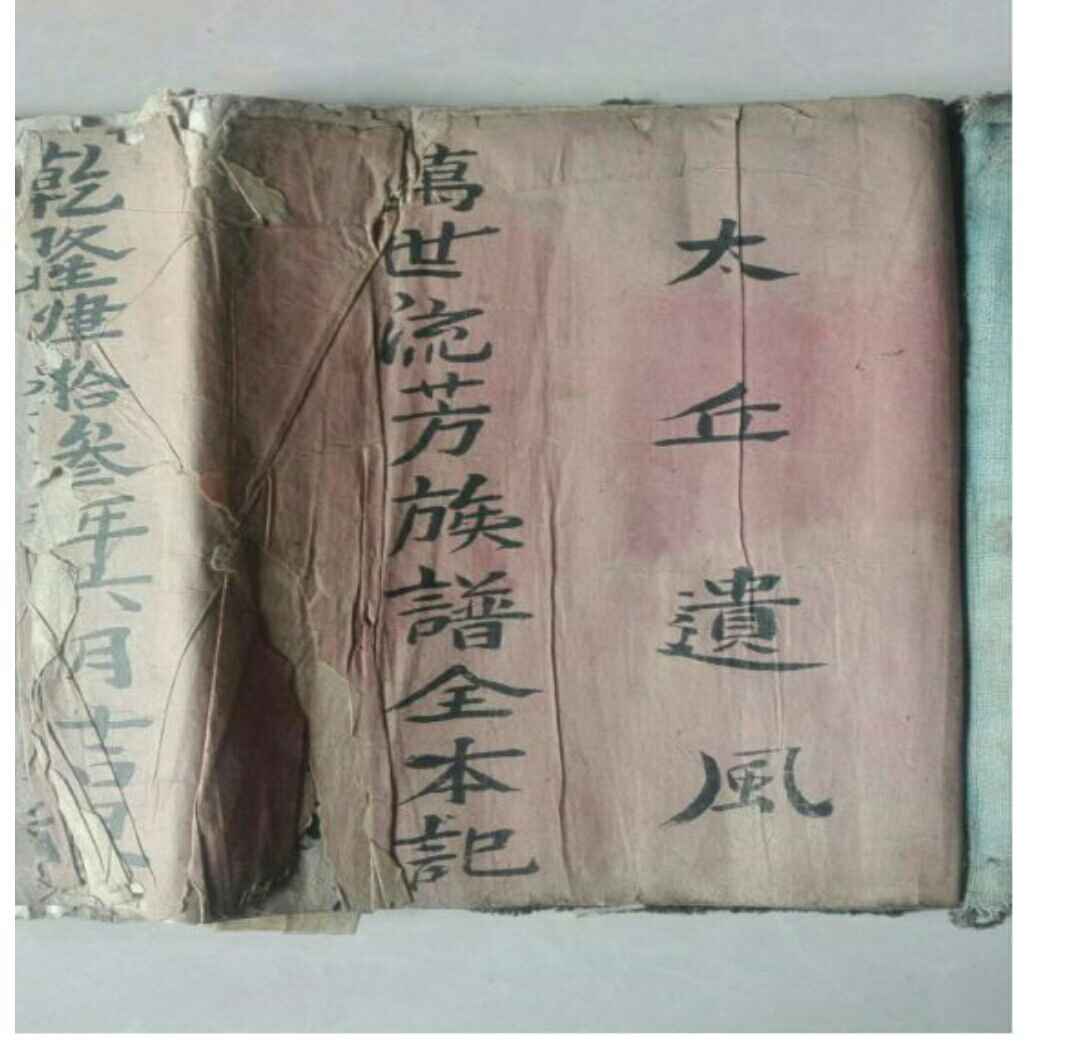 太丘遺風
萬世流芳族譜全本記
乾隆肆拾叁年六月吉